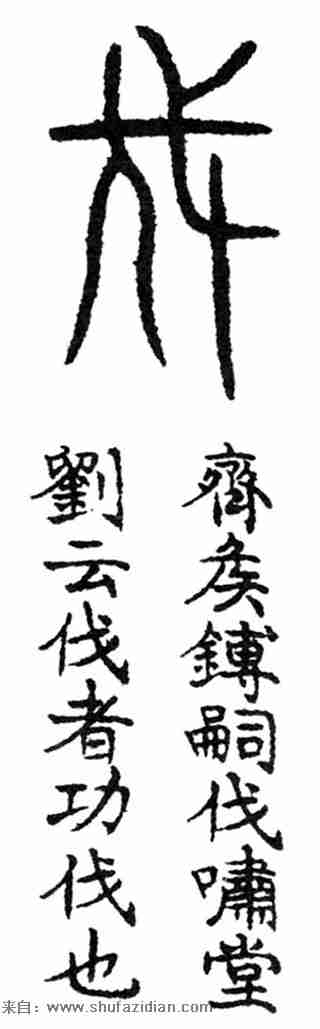 伐
齊矦鎛嗣伐嘯堂
劉云伐者功伐也
来自：www.shufazidian.com